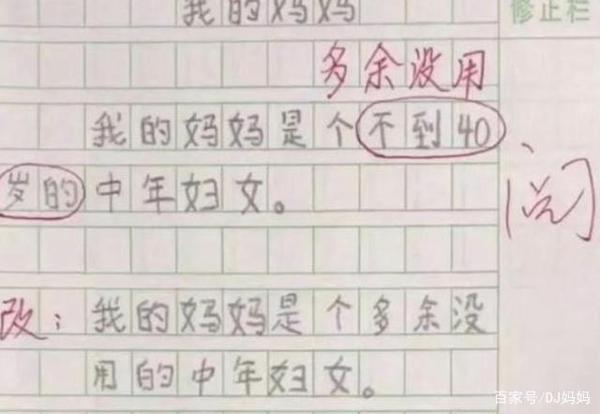 我的妈妈
修正栏
多余没用
我的妈妈是个不到40
岁的中年妇女。
阅
改：我的妈妈是个多余没
用的中年妇女。
百家号/DJ妈妈